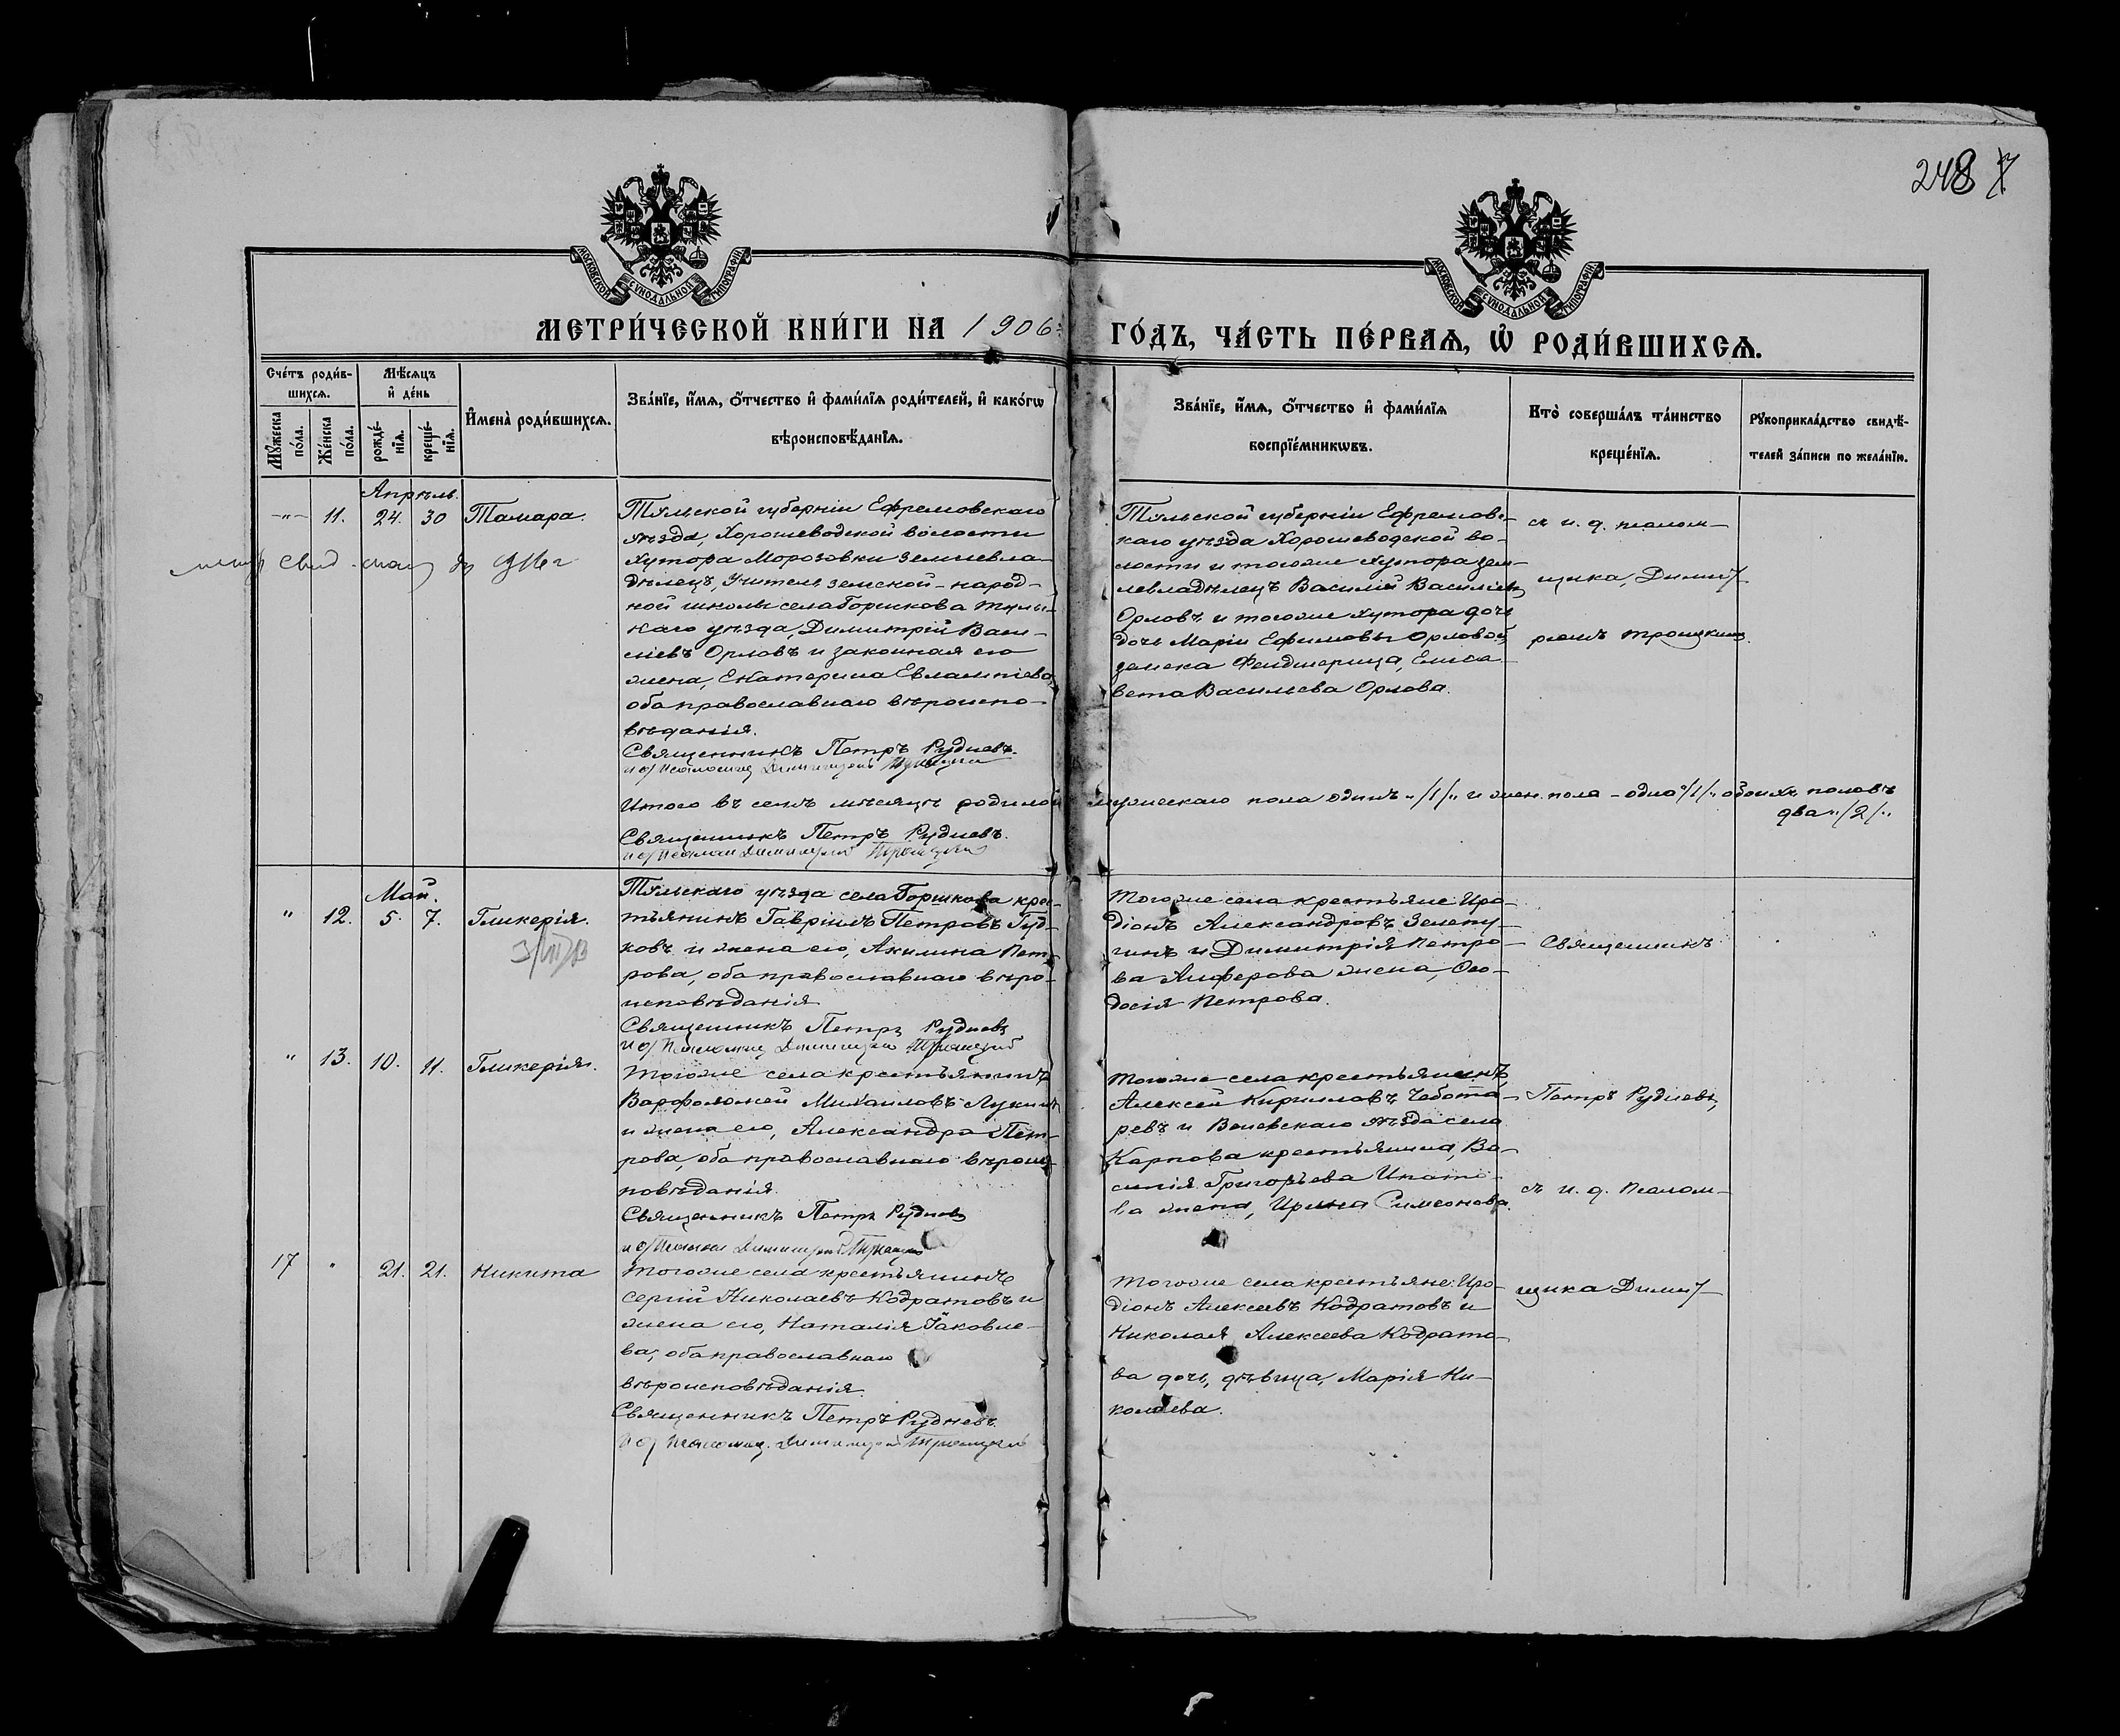 248
МОСКОВСКОЙ СѴНОДАЛЬНОЙ ТИПОГРАФІИ
МОСКОВСКОЙ СѴНОДАЛЬНОЙ ТИПОГРАФІИ
МЕТРИ́ЧЕСКОЙ КНИ́ГИ НА 1906
ГО́ДЪ, ЧА́СТЬ ПЕ́РВАѦ, Ѡ҆ РОДИ́ВШИХСѦ.
Сче́тъ роди́в-
шихсѧ.
Мꙋ́жеска
по́ла.
Же́нска
по́ла.
Мѣ́сѧцъ
и҆ де́нь
рожде́-
нїѧ.
креще́-
нїѧ.
И҆мена̀ роди́вшихсѧ.
Зва́нїе, и҆́мѧ, ѻ҆́тчество и҆ фами́лїѧ роди́телей, и҆ како́гѡ
вѣроисповѣ́данїѧ.
Зва́нїе, и҆́мѧ, ѻ҆́тчество и҆ фами́лїѧ
воспрїе́мникѡвъ.
Кто̀ соверша́лъ та́инство
креще́нїѧ.
Рꙋкоприкла́дство свидѣ́-
телей за́писи по жела́нїю.
Апрѣль.
-"- 11. 24. 30 Тамара.
Тульской губерніи Ефремовскаго
уѣзда, Хорошеводской волости
хутора Морозовки землевла-
дѣлецъ, учитель земской-народ-
ной школы села Горшкова Туль-
скаго уѣзда, Димитрій Васи-
ліевъ Орловъ и законная его
жена, Екатерина Евлампіева,
оба православнаго вѣроиспо-
вѣданія.
Священникъ Петръ Рудневъ.
и о/ Псаломщ Димитрій Троицкій
Тульской губерніи Ефремов-
скаго уѣзда Хорошеводской во-
лости и тогоже хутора зем-
левладѣлецъ Василій Василіевъ
Орловъ и тогоже хутора дочь
дочь Маріи Ефимовы Орловой,
земска Фельдшерица, Елиса-
вета Васильева Орлова.
съ и. д. псалом-
щика, Димит-
ріемъ Троицкимъ.
Итого въ семъ мѣсяцѣ родилось
мужескаго пола одинъ "/1/" и жен. пола - одна "/1/" обоихъ половъ
два "/2/"
Священникъ Петръ Рудневъ.
и о/ Псалом Димитрій Троицкій
Май.
" 12. 5. 7. Гликерія.
Тульскаго уѣзда села Горшкова крес-
тьянинъ Гавріилъ Петровъ Гуд-
ковъ и жена его, Акилина Пет-
рова, оба православнаго вѣро-
исповѣданія
Священникъ Петръ Рудневъ
и о/ Псаломщ Димитрій Троицкій
Тогоже села крестьяне: Иро-
діонъ Александровъ Зелепу-
гинъ и Димитрія Петро-
ва Алферова жена, Ѳео-
досія Петрова.
Священникъ
" 13. 10. 11. Гликерія.
Тогоже села крестьянинъ
Варфоломей Михаиловъ Лукинъ
и жена его, Александра Пет-
рова, оба православнаго вѣроис-
повѣданія.
Священникъ Петръ Рудневъ
и о/ Псаломщ Димитрій Троицкій
Тогоже села крестьянинъ
Алексей Кирилловъ Чебота-
ревъ и уѣзда села
Карпова крестьянина, Ва-
силія Григорьева Ипато-
ва жена, Ирина Симеонова.
Петръ Рудневъ,
съ и. д. псалом-
17 " 21. 21. Никита
Тогоже села крестьянинъ
Сергій Николаевъ Кодратовъ и
жена его, Наталія Іаковле-
ва, оба православнаго
вѣроисповѣданія.
Священникъ Петръ Рудневъ.
и о/ Псаломщ. Димитрій Троицкій
Тогоже села крестьяне: Иро-
діонъ Алексеевъ Кодратовъ и
Николая Алексеева Кодрато-
ва дочь, дѣвица, Марія Ни-
колаева.
щика Димит-